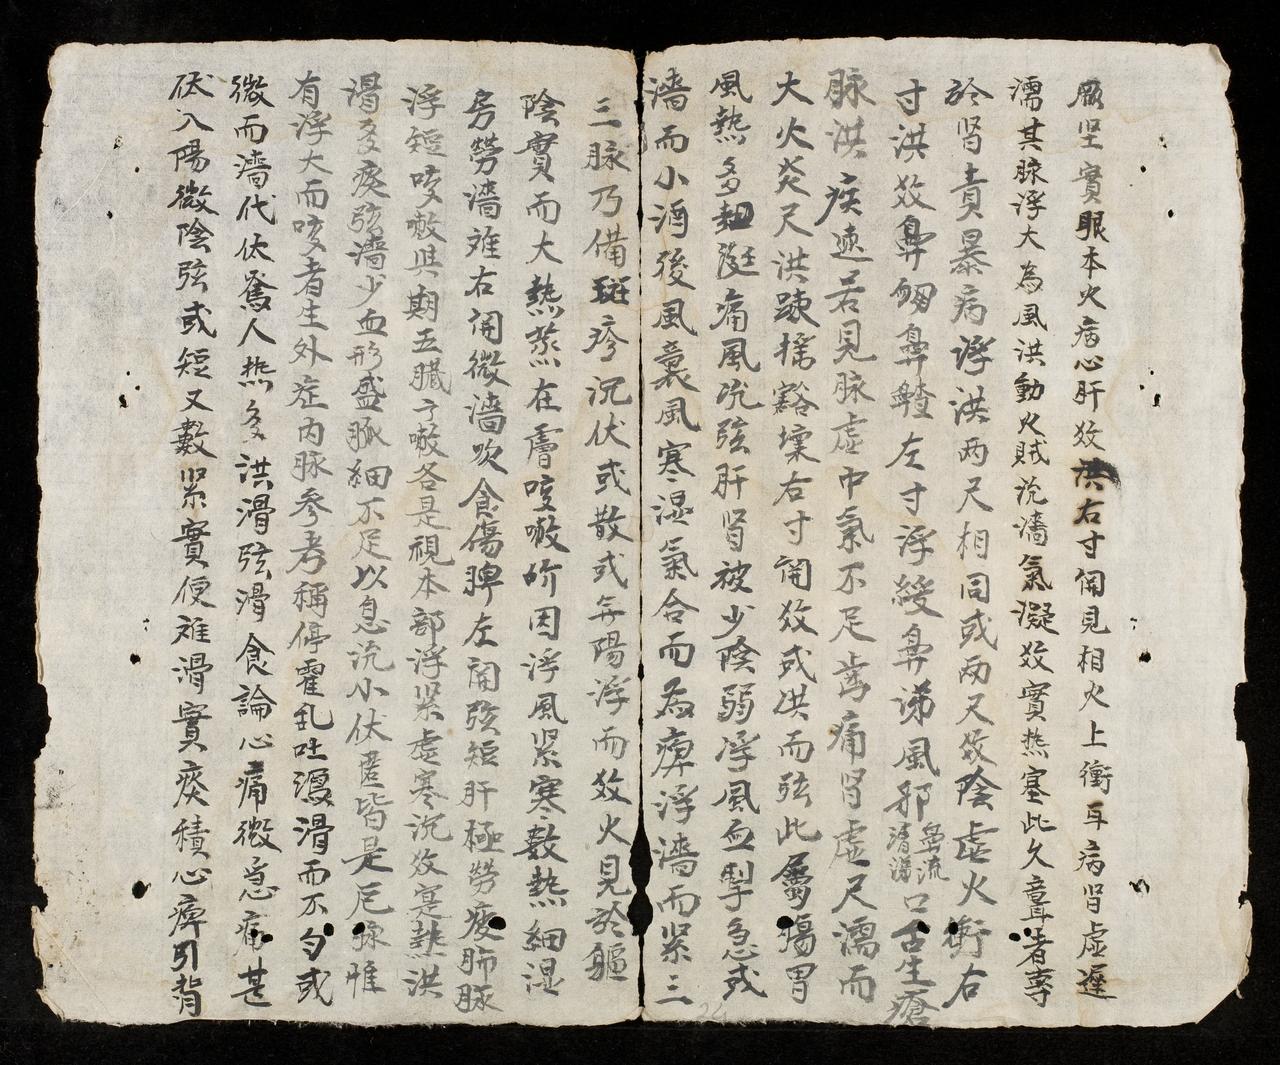 厥坚實眼本火病心肝效洪右寸関見相火上衝耳病腎虛遲
濡其脉浮大為風洪動火賊沉濇氣凝效實热塞此久聋者專
於腎責暴病浮洪两尺相同或两尺效陰虛火衝右
寸洪效鼻衂鼻齄左寸浮緩鼻涕風邪鼻流清涕口舌生瘡
脉洪疾速若見脉虛中氣不足齿痛腎虛尺濡而
大火炎尺洪踈摇豁壞右寸関效或洪而弦此屬腸胃
風熱多粗涎痛風沉弦肝腎被少陰弱浮風血掣急或
濇而小酒後風襲風寒湿氣合而為痺浮濇而紧三
三脉乃備斑疹沉伏或散或無陽浮而效火見於軀
陰實而大熱蒸在膚咳嗽所因浮風紧寒數熱細湿
房勞濇难右関微濇飲食傷脾左関弦短肝極勞疲肺脉
浮短咳嗽與期五臟之嗽各是視本部浮紧虛寒沉效寔熱洪
滑多痰弦濇少血形盛脉細不足以息沉小伏匿皆是厄脉惟
有浮大而咳者生外症内脉参考稱停霍乱吐瀉滑而不匀或
微而濇代伏驚人热多洪滑弦滑食論心痛微急痛甚
伏入陽微陰弦或短又數紧實便难滑實痰積心痺引背